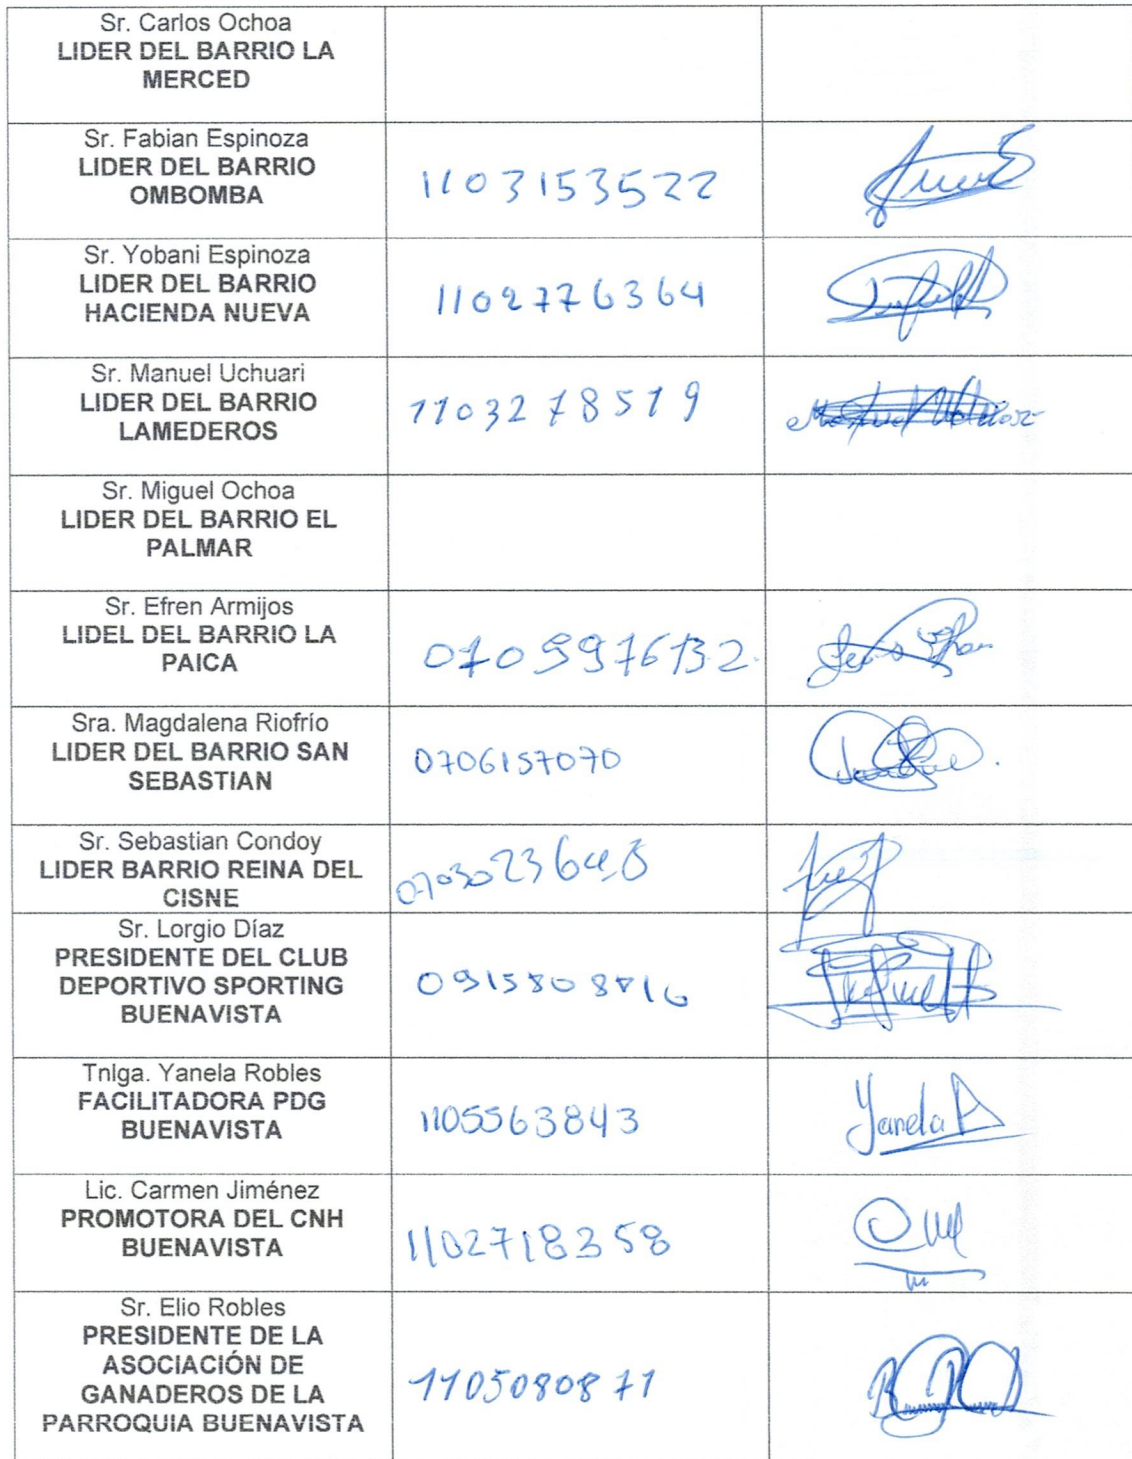 Sr. Carlos Ochoa
LIDER DEL BARRIO LA
MERCED
Sr. Fabian Espinoza
LIDER DEL BARRIO
OMBOMBA
1103153522
Sr. Yobani Espinoza
LIDER DEL BARRIO
HACIENDA NUEVA
1102776364
Sr. Manuel Uchuari
LIDER DEL BARRIO
LAMEDEROS
1103278519
Sr. Miguel Ochoa
LIDER DEL BARRIO EL
PALMAR
Sr. Efren Armijos
LIDEL DEL BARRIO LA
PAICA
Sra. Magdalena Riofrío
LIDER DEL BARRIO SAN
SEBASTIAN
0706157070
Sr. Sebastian Condoy
LIDER BARRIO REINA DEL
CISNE
Sr. Lorgio Díaz
PRESIDENTE DEL CLUB
DEPORTIVO SPORTING
BUENAVISTA
Tnlga. Yanela Robles
FACILITADORA PDG
BUENAVISTA
1105563843
Yanela R
Lic. Carmen Jiménez
PROMOTORA DEL CNH
BUENAVISTA
1102718358
Sr. Elio Robles
PRESIDENTE DE LA
ASOCIACIÓN DE
GANADEROS DE LA
PARROQUIA BUENAVISTA
1105080871